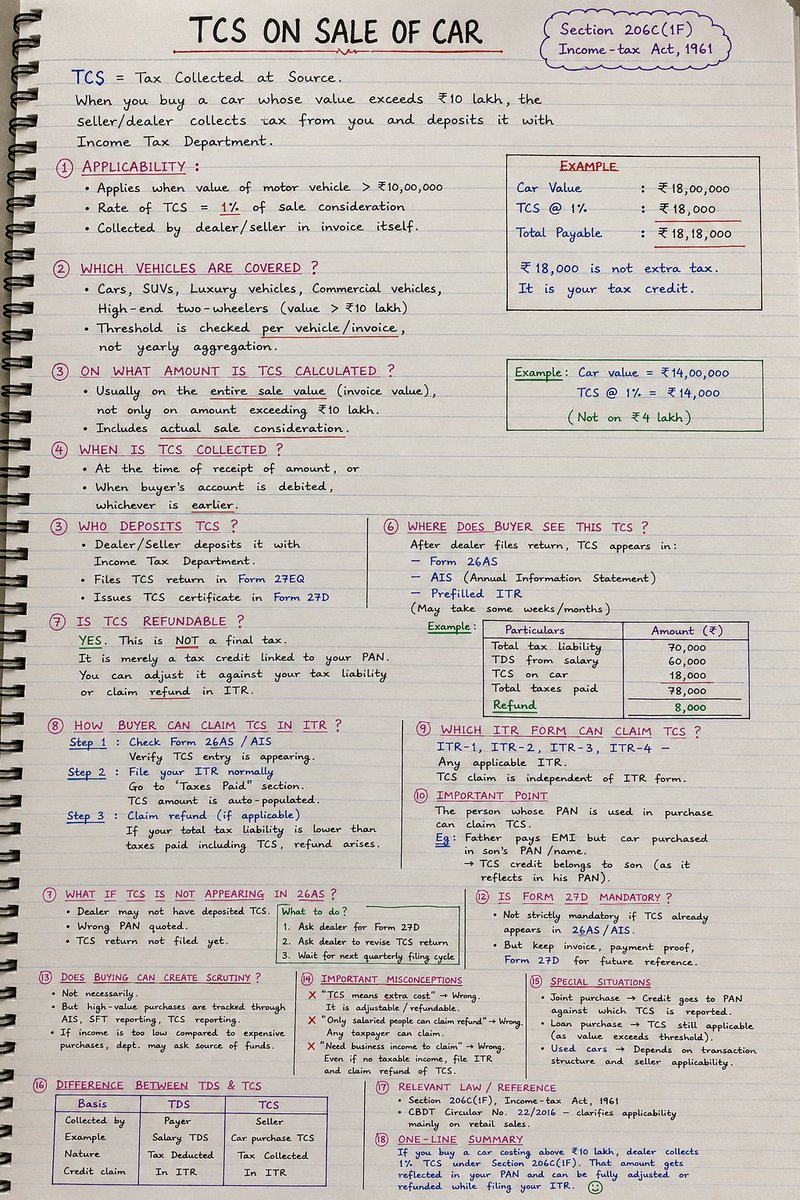 TCS ON SALE OF CAR
Section 206C(1F)
Income-tax Act, 1961
TCS = Tax Collected at Source.
When you buy a car whose value exceeds ₹10 lakh, the
seller/dealer collects tax from you and deposits it with
Income Tax Department.
① APPLICABILITY :
• Applies when value of motor vehicle > ₹10,00,000
• Rate of TCS = 1% of sale consideration
• Collected by dealer/seller in invoice itself.
EXAMPLE
Car Value : ₹18,00,000
TCS @ 1% : ₹18,000
Total Payable : ₹18,18,000
₹18,000 is not extra tax.
It is your tax credit.
② WHICH VEHICLES ARE COVERED ?
• Cars, SUVs, Luxury vehicles, Commercial vehicles,
High-end two-wheelers (value > ₹10 lakh)
• Threshold is checked per vehicle/invoice,
not yearly aggregation.
③ ON WHAT AMOUNT IS TCS CALCULATED ?
• Usually on the entire sale value (invoice value),
not only on amount exceeding ₹10 lakh.
• Includes actual sale consideration.
Example : Car value = ₹14,00,000
TCS @ 1% = ₹14,000
(Not on ₹4 lakh)
④ WHEN IS TCS COLLECTED ?
• At the time of receipt of amount, or
• When buyer's account is debited,
whichever is earlier.
③ WHO DEPOSITS TCS ?
• Dealer/Seller deposits it with
Income Tax Department.
• Files TCS return in Form 27EQ
• Issues TCS certificate in Form 27D
⑥ WHERE DOES BUYER SEE THIS TCS ?
After dealer files return, TCS appears in:
– Form 26AS
– AIS (Annual Information Statement)
– Prefilled ITR
(May take some weeks/months)
⑦ IS TCS REFUNDABLE ?
YES. This is NOT a final tax.
It is merely a tax credit linked to your PAN.
You can adjust it against your tax liability
or claim refund in ITR.
Example :
Particulars Amount (₹)
Total tax liability 70,000
TDS from salary 60,000
TCS on car 18,000
Total taxes paid 78,000
Refund 8,000
⑧ HOW BUYER CAN CLAIM TCS IN ITR ?
Step 1 : Check Form 26AS / AIS
Verify TCS entry is appearing.
Step 2 : File your ITR normally
Go to "Taxes Paid" section.
TCS amount is auto-populated.
Step 3 : Claim refund (if applicable)
If your total tax liability is lower than
taxes paid including TCS, refund arises.
⑨ WHICH ITR FORM CAN CLAIM TCS ?
ITR-1, ITR-2, ITR-3, ITR-4 –
Any applicable ITR.
TCS claim is independent of ITR form.
⑩ IMPORTANT POINT
The person whose PAN is used in purchase
can claim TCS.
Eg : Father pays EMI but car purchased
in son's PAN /name.
→ TCS credit belongs to son (as it
reflects in his PAN).
⑦ WHAT IF TCS IS NOT APPEARING IN 26AS ?
• Dealer may not have deposited TCS.
• Wrong PAN quoted.
• TCS return not filed yet.
What to do?
1. Ask dealer for Form 27D
2. Ask dealer to revise TCS return
3. Wait for next quarterly filing cycle
⑫ IS FORM 27D MANDATORY ?
• Not strictly mandatory if TCS already
appears in 26AS/AIS.
• But keep invoice, payment proof,
Form 27D for future reference.
⑬ DOES BUYING CAN CREATE SCRUTINY ?
• Not necessarily.
• But high-value purchases are tracked through
AIS, SFT reporting, TCS reporting.
• If income is too low compared to expensive
purchases, dept. may ask source of funds.
⑭ IMPORTANT MISCONCEPTIONS
✗ "TCS means extra cost" → Wrong.
It is adjustable/refundable.
✗ "Only salaried people can claim refund" → Wrong.
Any taxpayer can claim.
✗ "Need business income to claim" → Wrong.
Even if no taxable income, file ITR
and claim refund of TCS.
⑮ SPECIAL SITUATIONS
• Joint purchase → Credit goes to PAN
against which TCS is reported.
• Loan purchase → TCS still applicable
(as value exceeds threshold).
• Used cars → Depends on transaction
structure and seller applicability.
⑯ DIFFERENCE BETWEEN TDS & TCS
Basis TDS TCS
Collected by Payer Seller
Example Salary TDS Car purchase TCS
Nature Tax Deducted Tax Collected
Credit claim In ITR In ITR
⑰ RELEVANT LAW / REFERENCE
• Section 206C(1F), Income-tax Act, 1961
• CBDT Circular No. 22/2016 – clarifies applicability
mainly on retail sales.
⑱ ONE-LINE SUMMARY
If you buy a car costing above ₹10 lakh, dealer collects
1% TCS under Section 206C(1F). That amount gets
reflected in your PAN and can be fully adjusted or
refunded while filing your ITR. ☺